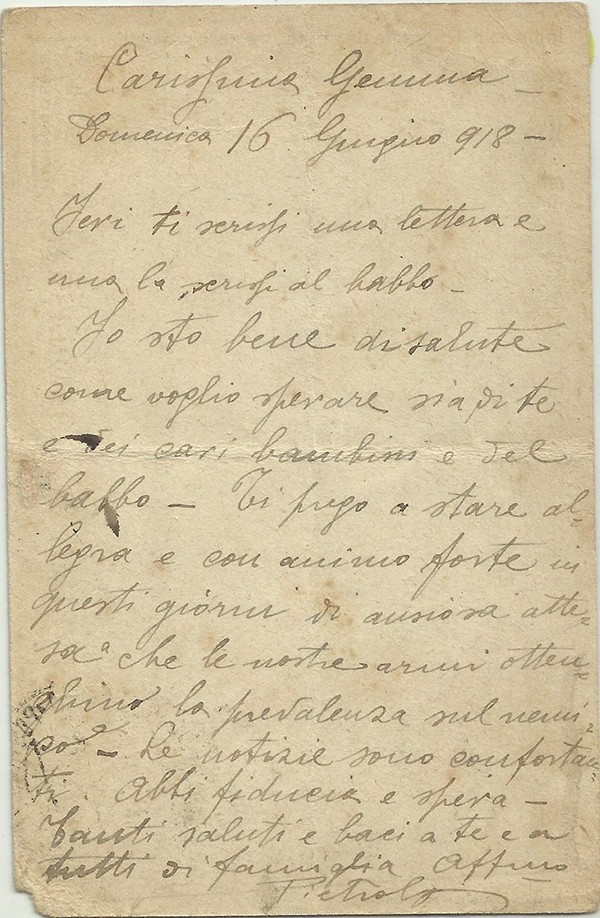 Carissima Gemma –
Domenica 16 Giugno 918 –
Ieri ti scrissi una lettera e
una la scrissi al babbo –
Io sto bene di salute
come voglio sperare sia di te
e dei cari bambini e del
babbo – Ti prego a stare al-
legra e con animo forte in
questi giorni di ansiosa atte-
sa che le nostre armi otten-
ghino la prevalenza sul nemi-
co – Le notizie sono confortan-
ti. Abbi fiducia e spera –
Tanti saluti e baci a te e a
tutti di famiglia Affmo
Pietro